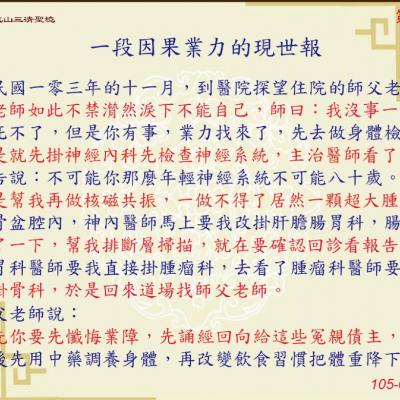 山三清聖境
一段因果業力的現世報
民國一零三年的十一月，到醫院探望住院的師父老
老師如此不禁潸然淚下不能自己，師曰：我沒事一
死不了，但是你有事，業力找來了，先去做身體檢
是就先掛神經內科先檢查神經系統，主治醫師看了
告說：不可能你那麼年輕神經系統不可能八十歲。
是幫我再做核磁共振，一做不得了居然一顆超大腫
骨盆腔內，神內醫師馬上要我改掛肝膽腸胃科，腸
了一下，幫我排斷層掃描，就在要確認回診看報告
胃科醫師要我直接掛腫瘤科，去看了腫瘤科醫師要
掛骨科，於是回來道場找師父老師。
父老師說：
先你要先懺悔業障，先誦經回向給這些冤親債主，
後先用中藥調養身體，再改變飲食習慣把體重降下
105-0